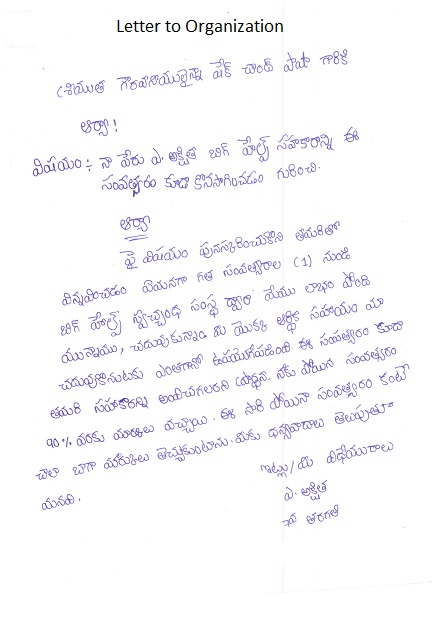 Letter to Organization
శ్రీయుత గౌరవనీయులైన షేక్ చాంద్ పాషా గారికి
ఆర్యా!
విషయం:- నా పేరు ఎ. అక్షిత బిగ్ హెల్ప్ సహకారాన్ని ఈ
సంవత్సరం కూడా కొనసాగించడం గురించి.
ఆర్యా
పై విషయం పునస్కరించుకొని తమరితో
విన్నవించడం ఏమనగా గత సంవత్సరాల (1) నుండి
బిగ్ హెల్ప్ స్వచ్ఛంధ సంస్థ ద్వారా మేము లాభం పొంది
యున్నాము, చదువుకున్నాం. మీ యొక్క ఆర్థిక సహాయం మా
చదువుకొనుటకు ఎంతగానో ఉపయోగపడింది ఈ సంవత్సరం కూడా
తమరి సహకారాన్ని అందించగలరని ప్రార్థన. నాకు పోయిన సంవత్సరం
90% వరకు మార్కులు వచ్చాయి. ఈ సారి పోయినా సంవత్సరం కంటే
చాలా బాగా మార్కులు తెచ్చుకుంటాను. మీకు ధన్యవాదాలు తెలుపుతూ
మనవి.
ఇట్లు/మీ విధేయురాలు
ఎ. అక్షిత
తరగతి